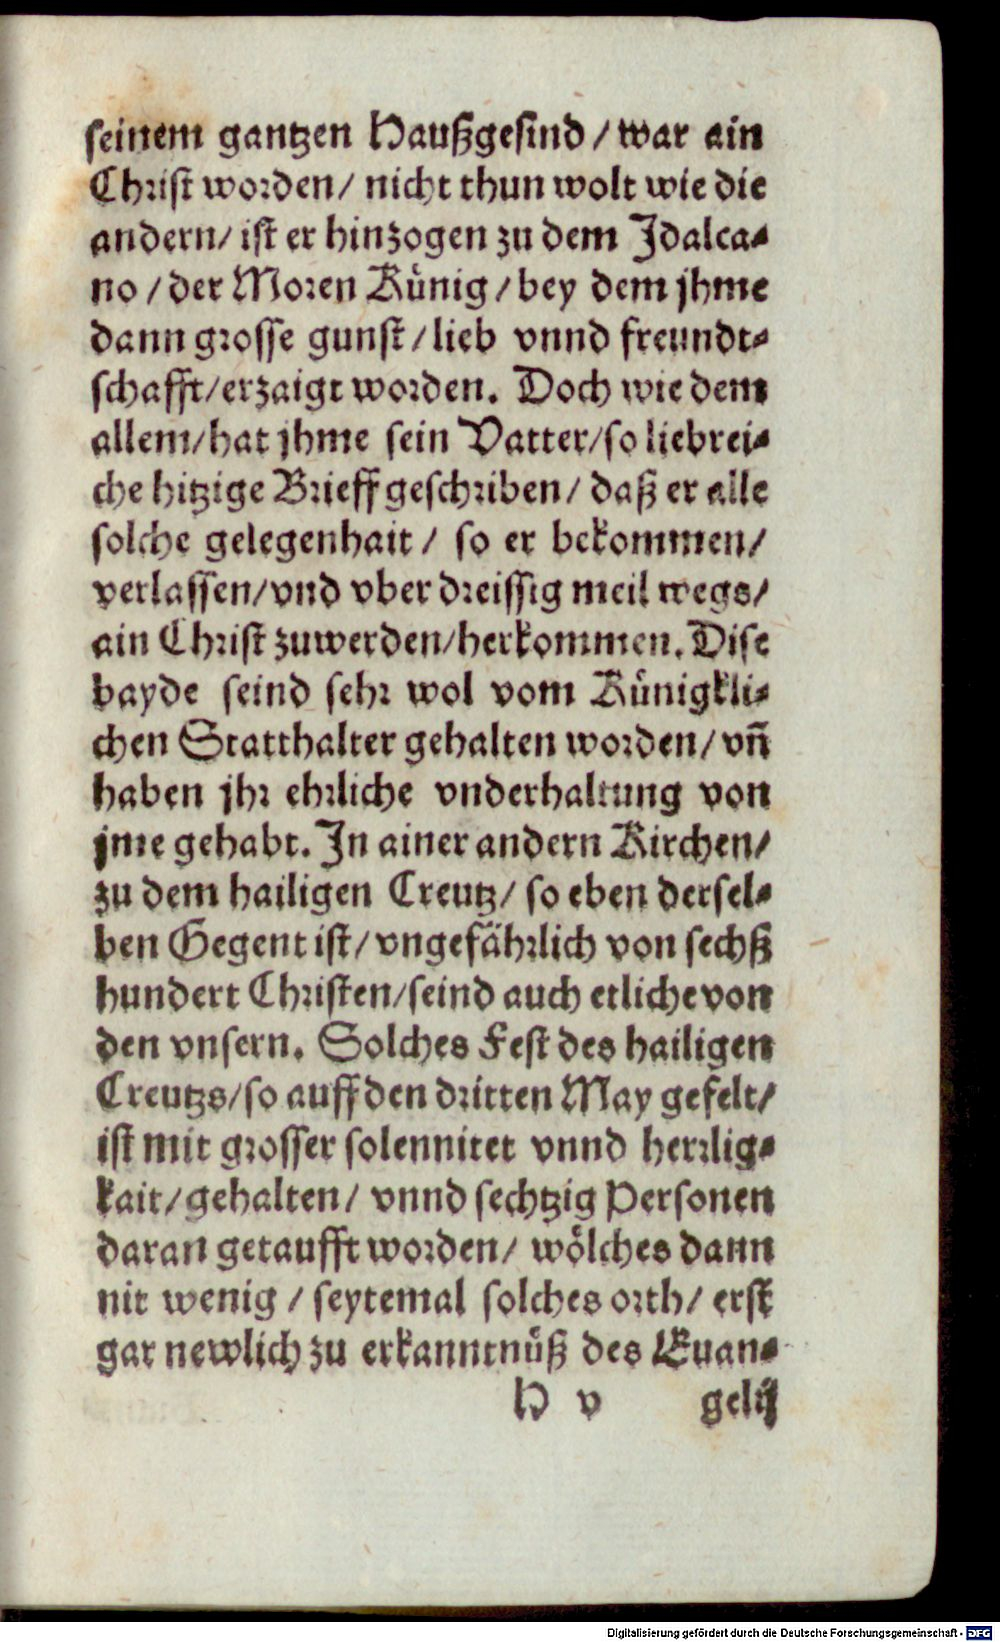 seinem gantzen Haußgesind / war ain
Christ worden / nicht thun wolt wie die
andern / ist er hinzogen zu dem Idalca⸗
no / der Moren Künig / bey dem jhme
dann grosse gunst / lieb vnnd freundt⸗
schafft / erzaigt worden. Doch wie dem
allem / hat jhme sein Vatter / so liebrei⸗
che hitzige Brieff geschriben / daß er alle
solche gelegenhait / so er bekommen /
verlassen / vnd vber dreissig meil wegs /
ain Christ zuwerden / herkommen. Dise
bayde seind sehr wol vom Künigkli⸗
chen Statthalter gehalten worden / vñ
haben jhr ehrliche vnderhaltung von
jme gehabt. In ainer andern Kirchen /
zu dem hailigen Creutz / so eben dersel⸗
ben Gegent ist / vngefährlich von sechß
hundert Christen / seind auch etliche von
den vnsern. Solches Fest des hailigen
Creutzs / so auff den dritten May gefelt /
ist mit grosser solennitet vnnd herrlig⸗
kait / gehalten / vnnd sechtzig Personen
daran getaufft worden / wölches dann
nit wenig / seytemal solches orth / erst
gar newlich zu erkanntnüß des Euan⸗
H v gelij
Digitalisierung gefördert durch die Deutsche Forschungsgemeinschaft - DFG